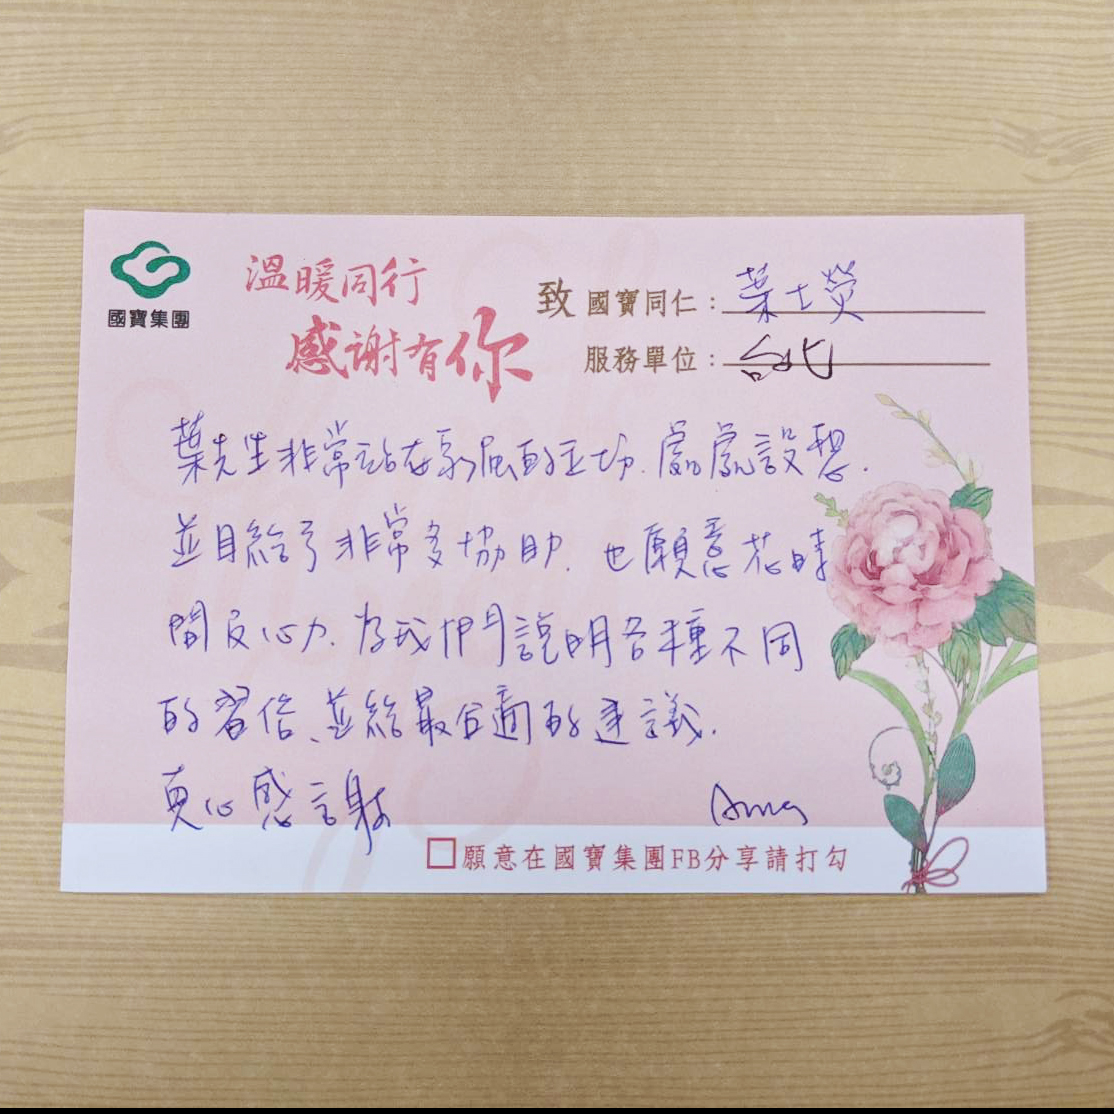 國寶集團
溫暖同行
感謝有你
致 國寶同仁：葉士熒
服務單位：台北
葉先生非常站在家屬的立場.處處設想.
並且給了非常多協助.也願意花時
間及心力.為我們說明各種不同
的習俗、並給最合適的建議.
真心感謝
Amy
□願意在國寶集團FB分享請打勾